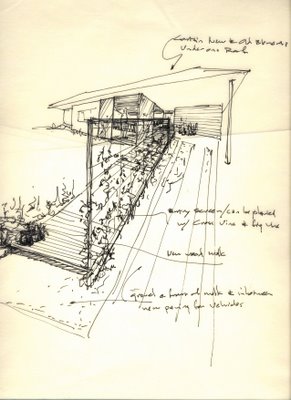 Contain New & Old Elements
Under one Roof
entry screen/can be planted
w/ Cross Vine & Fig Vine
New wood walk
gravel @ front of walk & inbetween
new paving for vehicles